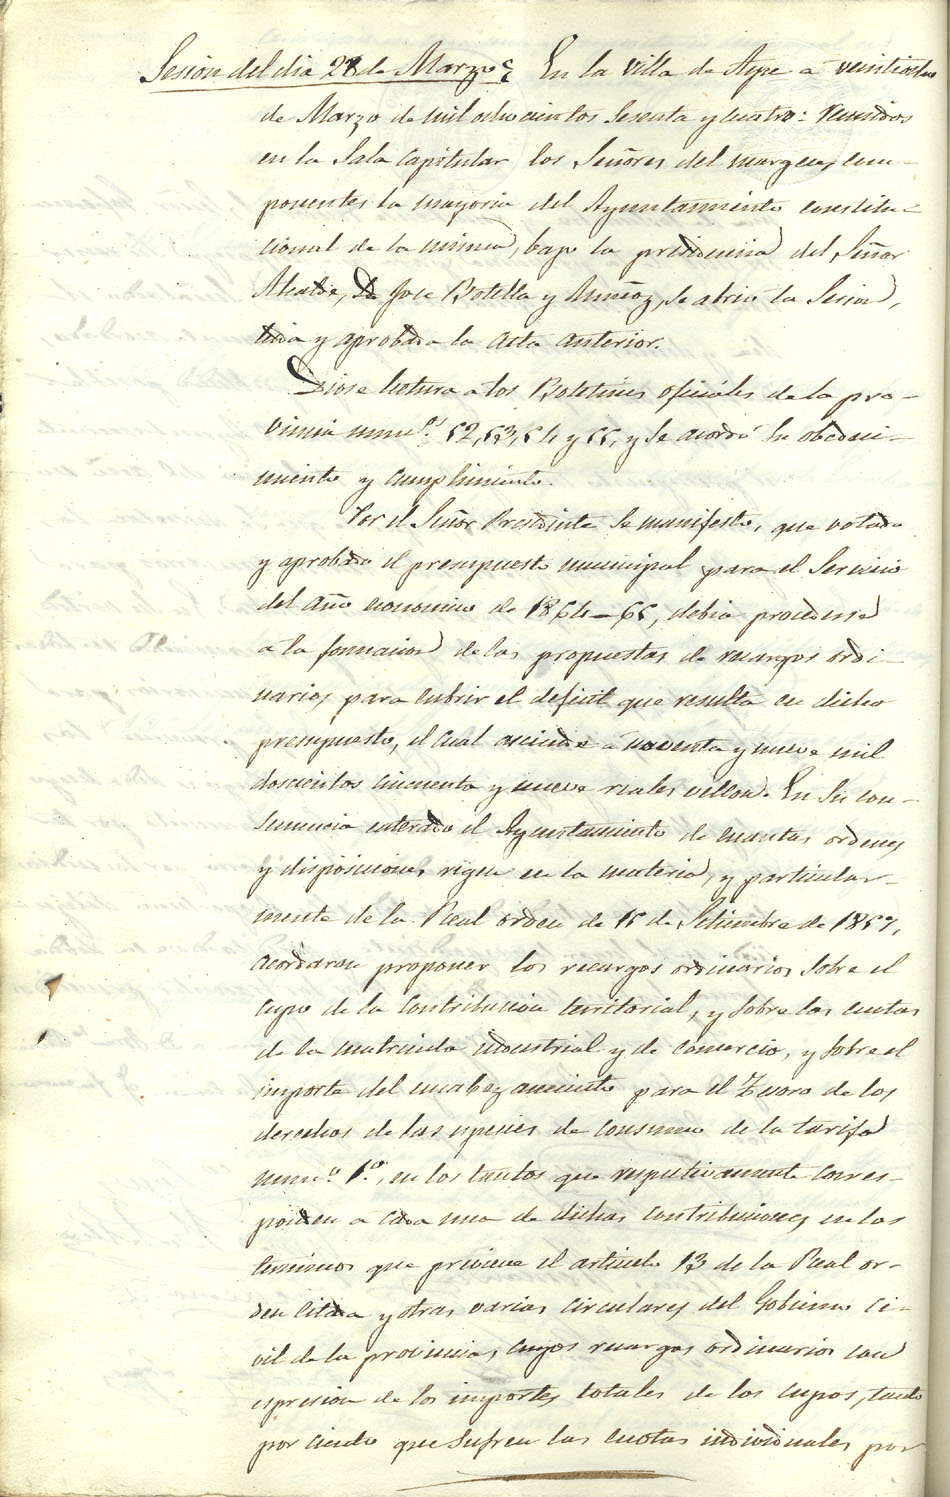 Sesion del dia 28 de Marzo En la Villa de Aspe a veintiocho
de Marzo de mil ochocientos sesenta y cuatro: reunidos
en la Sala Capitular los Señores del margen, com-
ponentes la mayoria del Ayuntamiento constitu-
cional de la misma, bajo la presidencia del Señor
Alcalde, Dn Jose Botella y Muñoz, se abrio la Sesion,
leida y aprobada la acta anterior.
Diose lectura a los Boletines oficiales de la pro-
vincia numos. 52, 53, 54 y 55, y se acordó su obedeci-
miento y cumplimiento.
Por el Señor Presidente se manifesto, que votado
y aprobado el presupuesto municipal para el Servicio
del año economico de 1864-65, debia procederse
a la formacion de las propuestas de recargos ordi-
narios para cubrir el deficit que resulta en dicho
presupuesto, el cual asciende a noventa y nueve mil
doscientos cincuenta y nueve reales vellon. En su con-
secuencia enterado el Ayuntamiento de cuantas ordenes
y disposiciones rigen en la materia, y particular-
mente de la Real orden de 15 de Setiembre de 1857,
acordaron proponer los recargos ordinarios sobre el
cupo de la contribucion territorial, y sobre las cuotas
de la matricula industrial y de comercio, y sobre el
importe del encabezamiento para el Tesoro de los
derechos de las especies de consumo de la tarifa
numo. 1o., en los tantos que respectivamente corres-
ponden a cada una de dichas contribuciones en los
terminos que previene el articulo 13 de la Real or-
den citada y otras varias circulares del Gobierno Ci-
vil de la provincia, cuyos recargos ordinarios con
espresion de los importes totales de los cupos, tanto
por ciento que sufren las cuotas individuales por